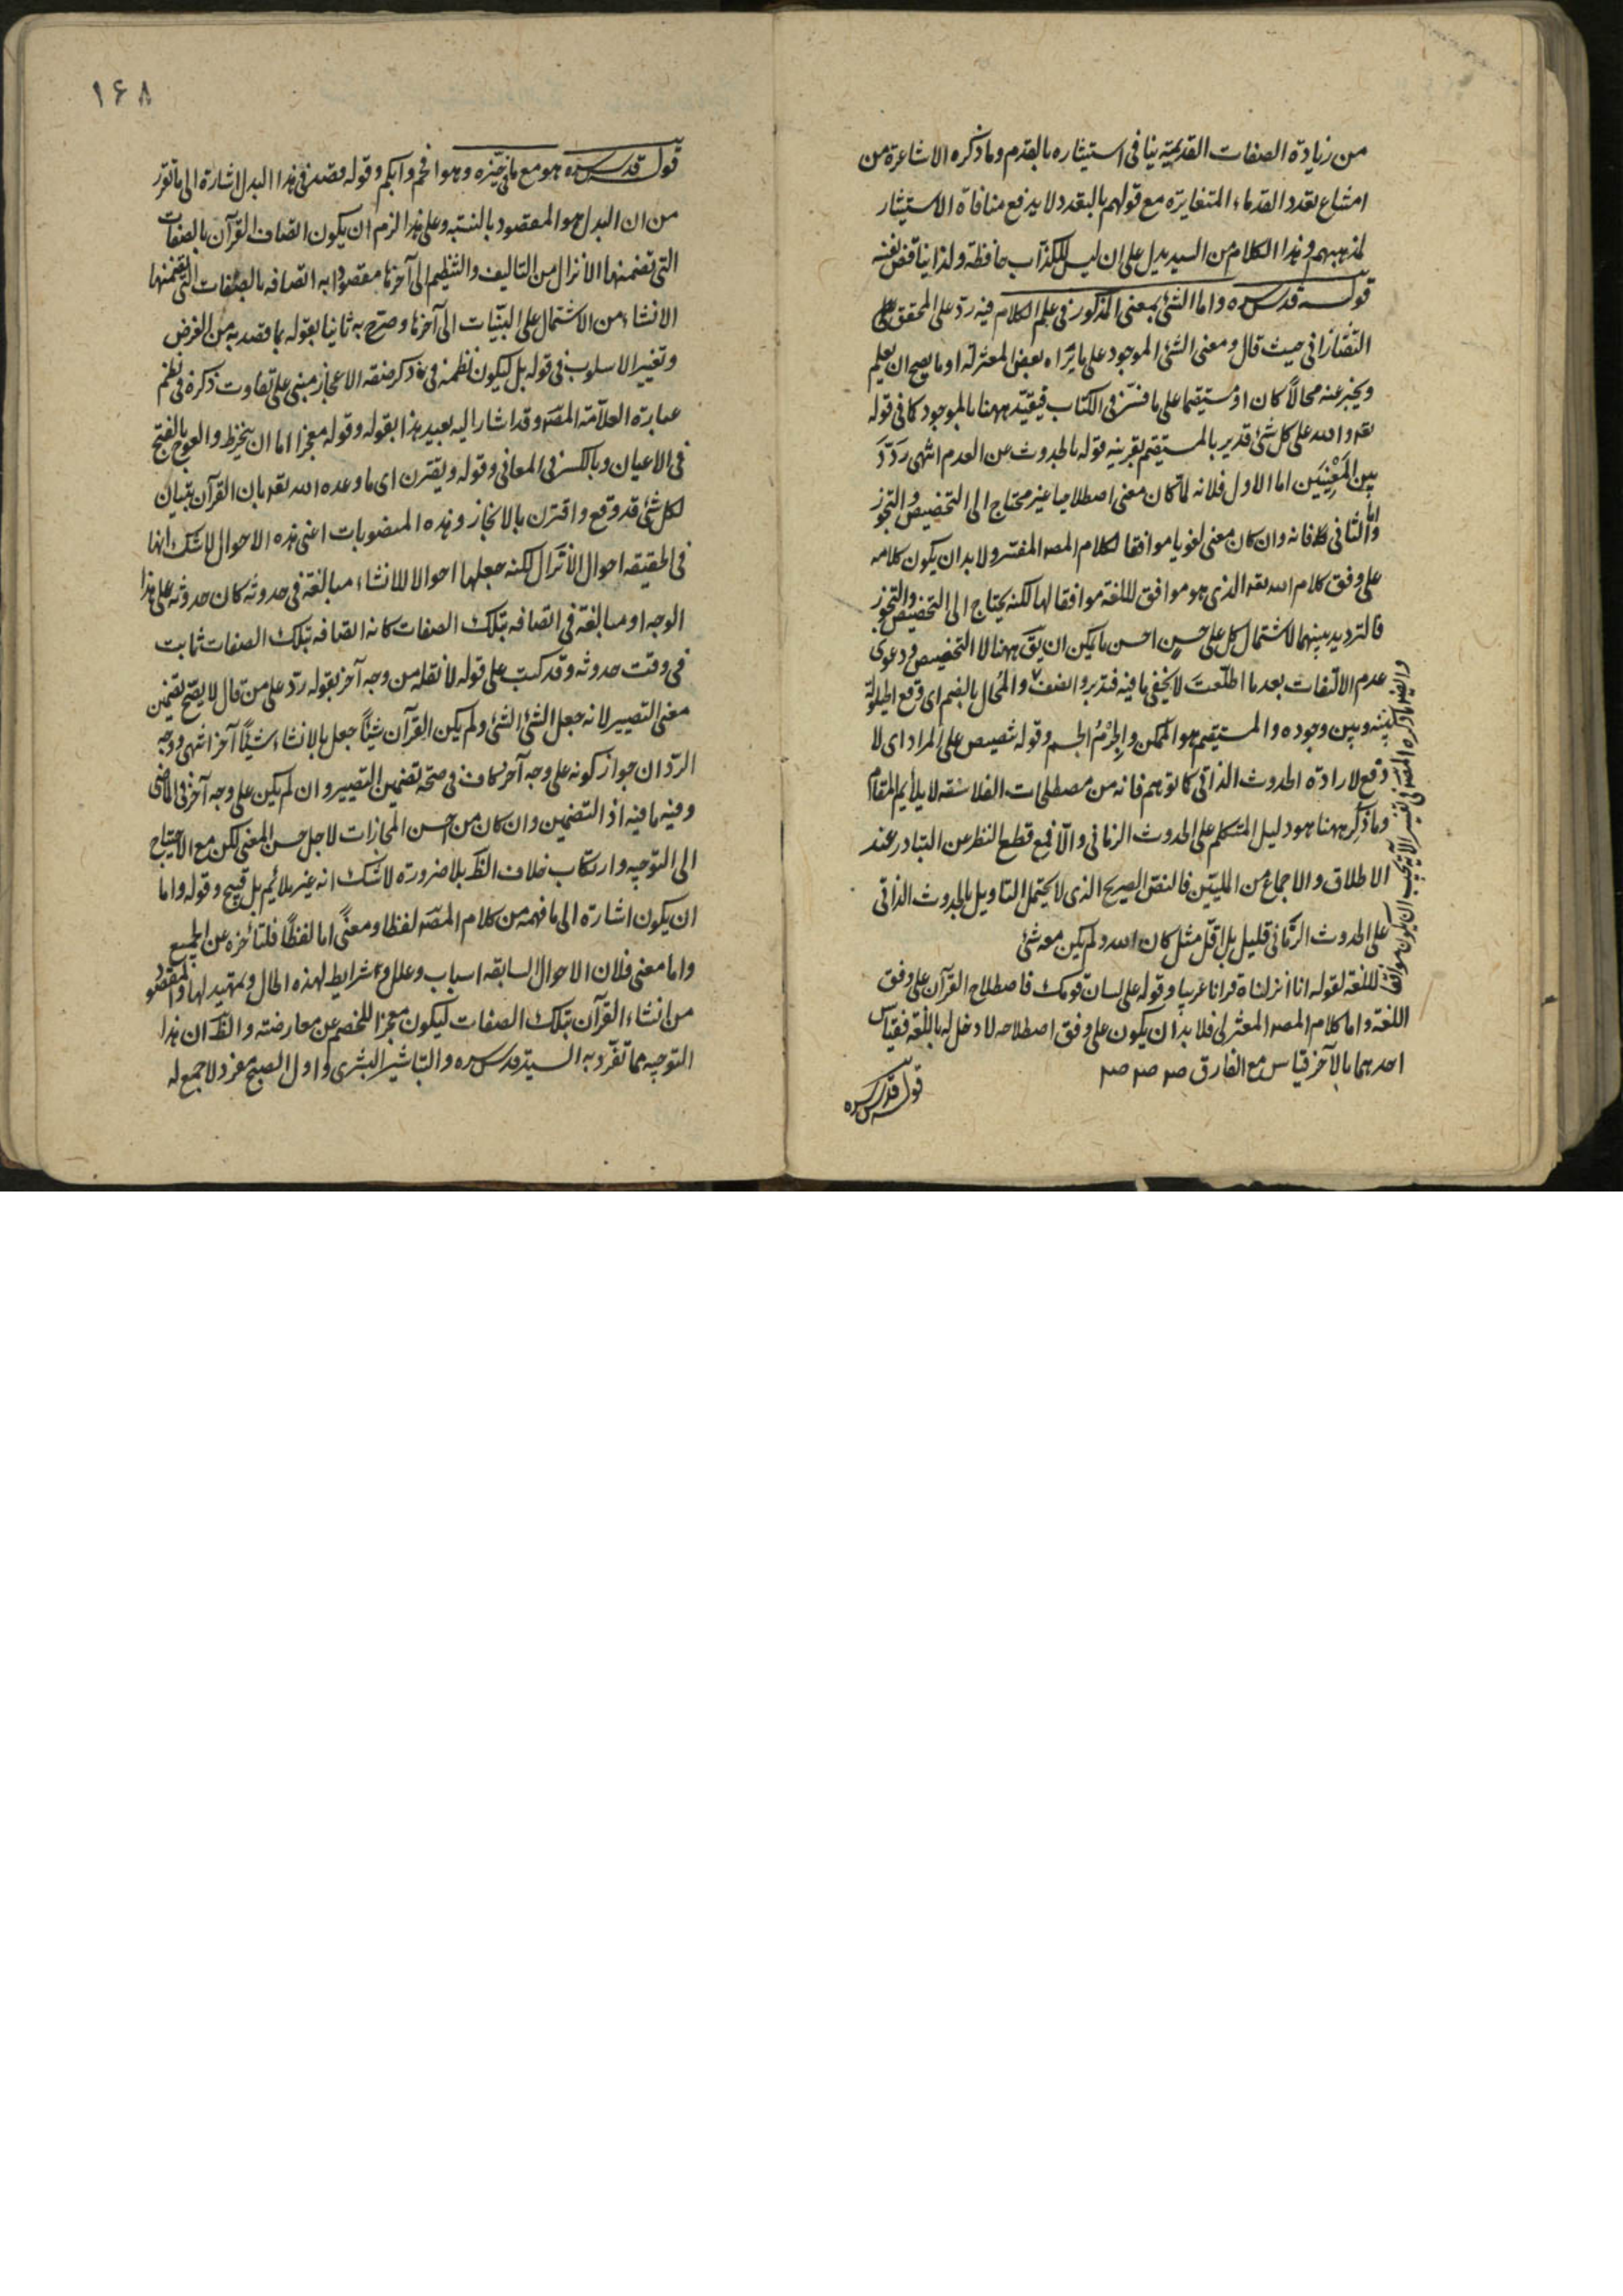 من زيادة الصفات القديمة ينافى استيثاره بالقدم وما ذكره الاشاعرة من
امتناع تعدد القدماء المتغايرة مع قولهم بالتعدد لا يدفع منافاة الاستيثار
لمذهبهم وهذا الكلام من السيد يدل على ان ليس للكذاب حافظة ولذا يناقض نفسه
قوله قدس سره واما الشئ بمعنى المذكور فى علم الكلام فيه رد على المحقق
التفتازانى حيث قال ومعنى الشئ الموجود على ما يراه بعض المعتزلة او ما يصح ان يعلم
ويخبر عنه محالا كان او مستقيما على ما فسر فى الكتاب فيقيد ههنا بالموجود كما فى قوله
تعه والله على كل شئ قدير بالمستقيم بقرينة قوله بالحدوث عن العدم انتهى ردّد
بين المعنيين اما الاول فلانه لما كان معنى اصطلاحيا غير محتاج الى التخصيص والتجوز
واما الثانى فلانه وان كان معنى لغويا موافقا لكلام المصه المفسر ولا بد ان يكون كلامه
على وفق كلام الله تعه الذى هو موافق للغة موافقا لها لكنه يحتاج الى التخصيص والتجوز
فالترديد بينهما لاشتمال كل على حسن احسن ما يمكن ان يق ههنا لا التخصيص ودعوى
عدم الالتفات بعد ما اطلعت لا يخفى ما فيه فتدبر وانصف والمحال بالضم اى وقع الحيلولة
بينه وبين وجوده والمستقيم هو الممكن والجرم الجسم وقوله تنصيص على المراد اى لا
دفع لارادة الحدوث الذاتى كما توهم فانه من مصطلحات الفلاسفه لا يلايم المقام
وما ذكر ههنا هو دليل المتكلم على الحدوث الزمانى والا فمع قطع النظر عن التبادر عند
الاطلاق والاجماع من المليين فالنص الصريح الذى لا يحتمل التاويل بالحدوث الذاتى
على الحدوث الزمانى قليل بل اقل مثل كان الله ولم يكن معه شئ
وايضا ما ذكره المصه فى تفسير الآية يجب ان يكون موافقا
للغة لقوله انا انزلناه قرانا عربيا وقوله على لسان قومك فاصطلاح القرآن على وفق
اللغة واما كلام المصه المعتزلى فلا بد ان يكون على وفق اصطلاحه لا دخل له باللغة فقياس
احدهما بالآخر قياس مع الفارق
قوله قدس سره
١٦٨
قوله قدس سره هو مع ما فى حيزه وهو افحم وابكم وقوله قصد فى هذا البدل اشارة الى ما تقرر
من ان البدل هو المقصود بالنسبة وعلى هذا لزم ان يكون اتصاف القرآن بالصفات
التى تضمنها الانزال من التاليف والتنظيم الى آخرها مقصودا به اتصافه بالصفات التى تضمنها
الانشاء من الاشتمال على البينات الى آخرها وصرح به ثانيا بقوله بما قصد به من الغرض
وتغيير الاسلوب فى قوله بل ليكون نظمه فى ذكر صفة الاعجاز مبنى على تفاوت ذكره فى نظم
عبارة العلامة المصه وقد اشار اليه بعيد هذا بقوله وقوله معجزا اما ان ينخرط والعوج بالفتح
فى الاعيان وبالكسر فى المعانى وقوله ويقترن اى ما وعده الله تعه بان القرآن تبيان
لكل شئ قد وقع واقترن بالانجاز وهذه المنصوبات اعنى هذه الاحوال لا شك انها
فى الحقيقه احوال الانزال لكنه جعلها احوالا للانشاء مبالغة فى حدوثه كان حدوثه على هذا
الوجه او مبالغة فى اتصافه بتلك الصفات كانه اتصافه بتلك الصفات ثابت
فى وقت حدوثه وقد كتب على قوله لا نقله من وجه آخر بقوله رد على من قال لا يصح تضمين
معنى التصيير لانه جعل الشئ الشئ ولم يكن القرآن شيئا جعل بالانشاء شيئا آخر انتهى ووجه
الرد ان جواز كونه على وجه آخر كاف فى صحة تضمين التصيير وان لم يكن على وجه آخر فى الماضى
وفيه ما فيه اذ التضمين وان كان من احسن المجازات لاجل حسن المعنى لكن مع الاحتياج
الى التوجيه وارتكاب خلاف الظ بلا ضرورة لا شك انه غير ملائم بل قبيح وقوله واما
ان يكون اشارة الى ما فهمه من كلام المصه لفظا ومعنى اما لفظا فلتأخره عن الجميع
واما معنى فلان الاحوال السابقه اسباب وعلل وشرايط لهذه الحال وتمهيد لها والمقصود
من انشاء القرآن بتلك الصفات ليكون معجزا للخصم عن معارضته والظ ان هذا
التوجيه مما تفرد به السيد قدس سره والتباشير البشرى واول الصبح مفرد لا جمع له